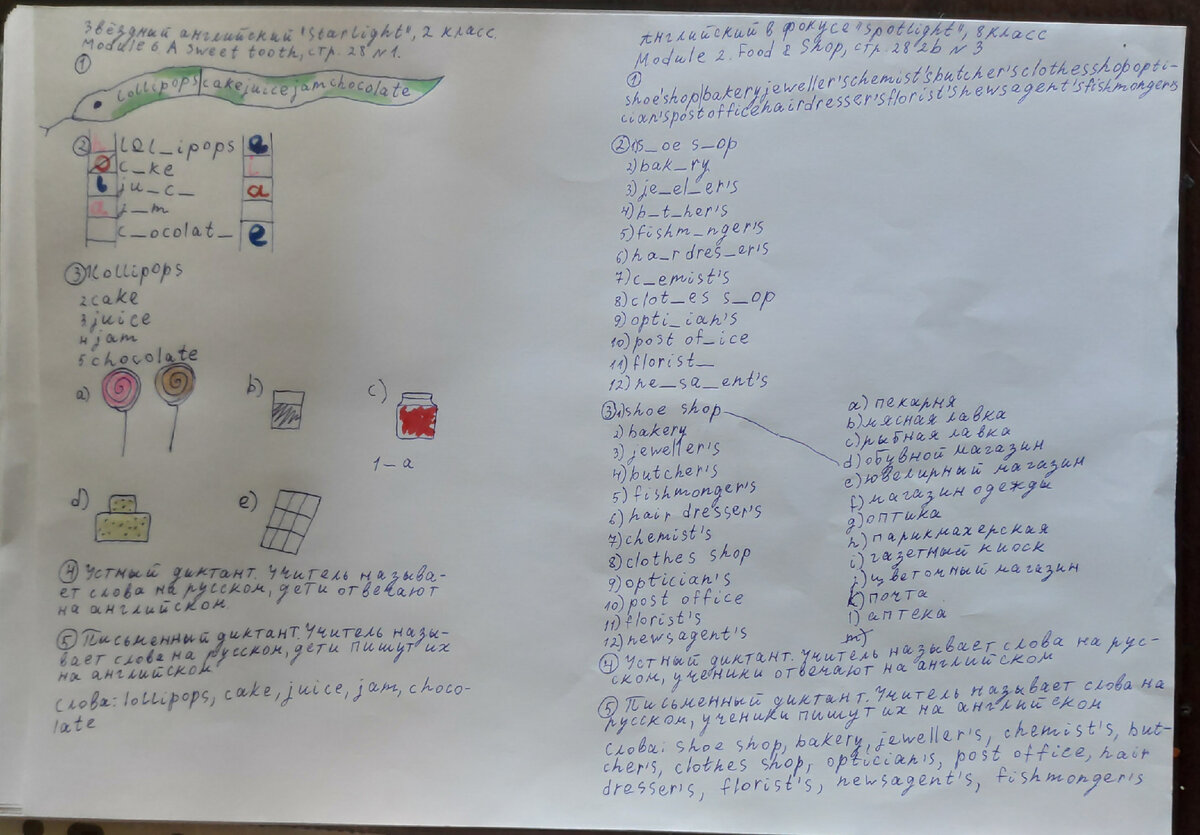 Звёздный английский "Starlight", 2 класс.
Module 6 A Sweet tooth, стр. 28 №1.
①
lollipops|cakejuicejamchocolate
② h lol_ipops e
o c_ke i
l ju_c_ a
a j_m
c_ocolat_ e
③ 1 lollipops
2 cake
3 juice
4 jam
5 chocolate
a) b) c)
1 – a
d) e)
④ Устный диктант. Учитель называ-
ет слова на русском, дети отвечают
на английском.
⑤ Письменный диктант. Учитель назы-
вает слова на русском, дети пишут их
на английском
слова: lollipops, cake, juice, jam, choco-
late
Английский в фокусе "Spotlight", 8 класс
Module 2. Food & Shop, стр. 28 2b № 3
①
shoe'shop|bakeryjeweller'schemist'sbutcher'sclothesshopopti-
cian'spostofficehairdresser'sflorist'snewsagent'sfishmonger's
② 1) s_oe s_op
2) bak_ry
3) je_el_er's
4) b_t_her's
5) fishm_nger's
6) ha_r dres_er's
7) c_emist's
8) clot_es s_op
9) opti_ian's
10) post of_ice
11) florist_
12) ne_sa_ent's
③ 1) shoe shop
2) bakery
3) jeweller's
4) butcher's
5) fishmonger's
6) hair dresser's
7) chemist's
8) clothes shop
9) optician's
10) post office
11) florist's
12) newsagent's
a) пекарня
b) мясная лавка
c) рыбная лавка
d) обувной магазин
e) ювелирный магазин
f) магазин одежды
g) оптика
h) парикмахерская
i) газетный киоск
j) цветочный магазин
k) почта
l) аптека
m)
④ Устный диктант. Учитель называет слова на рус-
ском, ученики отвечают на английском
⑤ Письменный диктант. Учитель называет слова на
русском, ученики пишут их на английском
слова: shoe shop, bakery, jeweller's, chemist's, but-
cher's, clothes shop, optician's, post office, hair
dresser's, florist's, newsagent's, fishmonger's